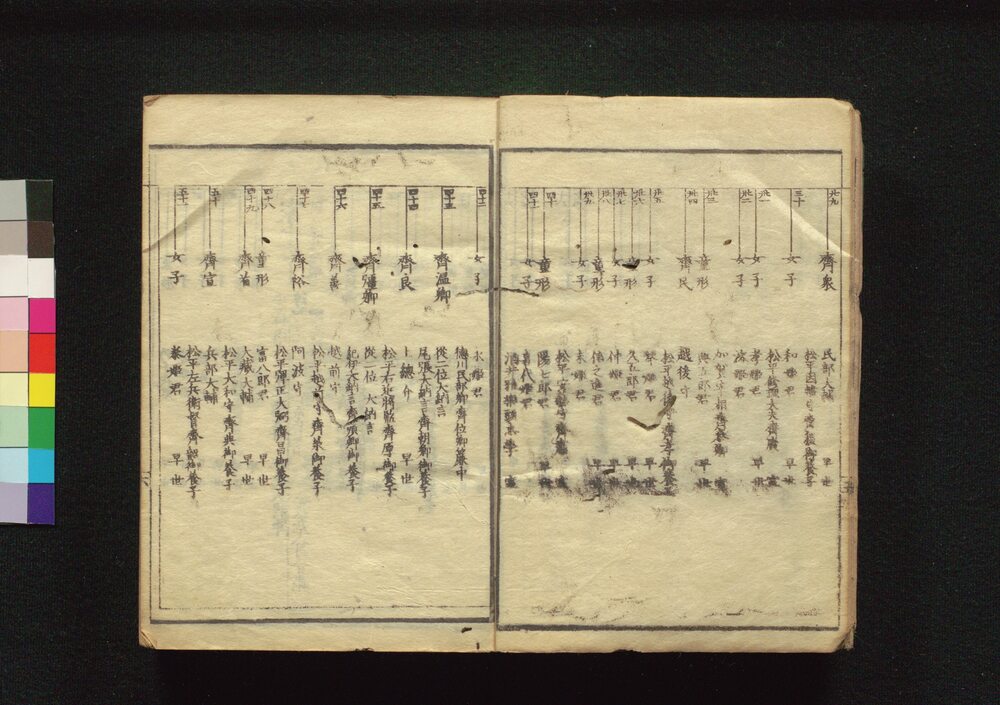 廿九 齊衆 民部大輔 早世
松平因幡守齊稷御養子
三十 女子 和姫君 早世
松平大膳大夫齊廣 室
卅一 女子 孝姫君 早世
卅二 女子 溶姫君
加賀宰相齊泰卿 室
卅三 童形 與五郎君 早世
卅四 齊民 越後守
松平越後守齊孝御養子
卅五 女子 琴姫君 早世
卅六 童形 久五郎君 早世
卅七 女子 仲姫君 早世
卅八 童形 信之進君 早世
卅九 女子 末姫君
松平安藝守齊肅 室
四十 童形 陽七郎君 早世
四十一 女子 喜代姫君
酒井雅樂頭忠學 室
四十二 女子 永姫君
徳川民部卿齊位卿簾中
四十三 齊温卿 從二位大納言
尾張大納言齊朝卿御養子
四十四 齊良 上總介 早世
松平右近將監齊厚御養子
四十五 齊彊卿 從二位 大納言
紀伊大納言齊順卿御養子
四十六 齊善 越前守
松平越前守齊承御養子
四十七 齊裕 阿波守
松平彈正大弼齊昌御養子
四十八 童形 富八郎君 早世
四十九 齊省 大藏大輔 早世
松平大和守齊典御養子
五十 齊宣 兵部大輔
松平左兵衛督齊韶御養子
五十一 女子 泰姫君